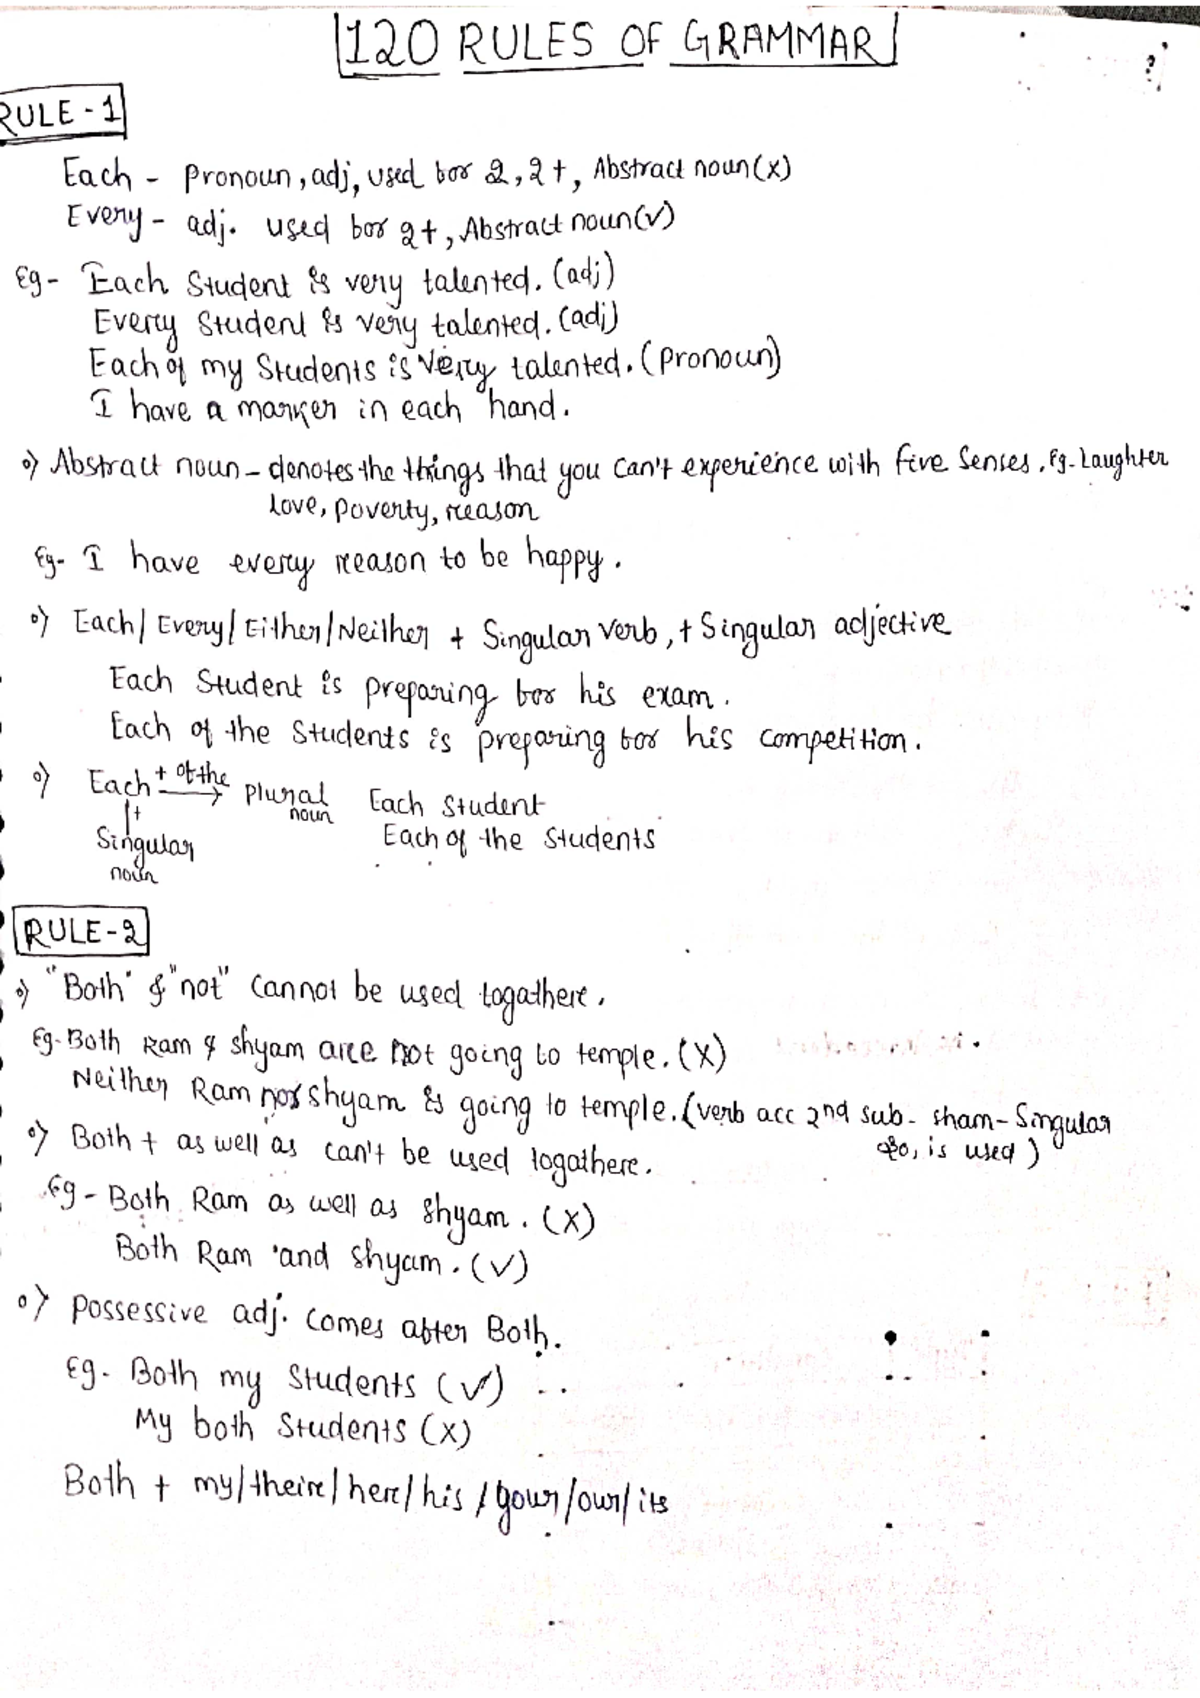 120 RULES OF GRAMMAR
RULE - 1
Each - Pronoun, adj, used for 2, 2+, Abstract noun(x)
Every - adj. used for 2+, Abstract noun(✓)
Eg- Each Student is very talented. (adj)
Every Student is very talented. (adj)
Each of my Students is very talented. (Pronoun)
I have a marker in each hand.
•) Abstract noun - denotes the things that you can't experience with five Senses. Eg. Laughter
Love, Poverty, reason
Eg- I have every reason to be happy.
•) Each/Every/Either/Neither + Singular Verb, + Singular adjective
Each Student is preparing for his exam.
Each of the Students is preparing for his competition.
•) Each + of the → Plural noun Each Student
+ Singular noun Each of the Students
RULE-2
•) "Both" & "not" cannot be used togathere.
Eg- Both Ram & Shyam are not going to temple. (X)
Neither Ram nor Shyam is going to temple. (verb acc 2nd sub - sham - Singular
So, is used)
•) Both + as well as can't be used togathere.
Eg - Both Ram as well as Shyam. (X)
Both Ram and Shyam. (✓)
•) Possessive adj. comes after Both.
Eg. Both my Students (✓)
My both Students (X)
Both + my/their/her/his/your/our/its